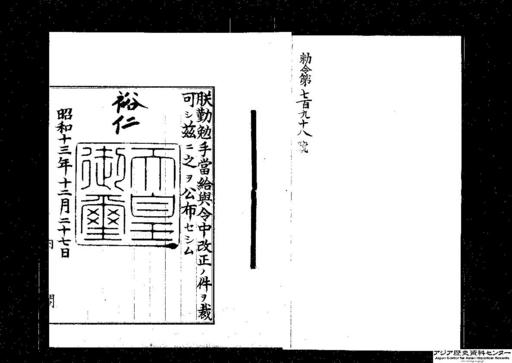 勅令第七百九十八號
朕勤勉手當給與令中改正ノ件ヲ裁
可シ茲ニ之ヲ公布セシム
裕仁
天皇御璽
昭和十三年十二月二十七日
内閣
アジア歴史資料センター
Japan Center for Asian Historical Records